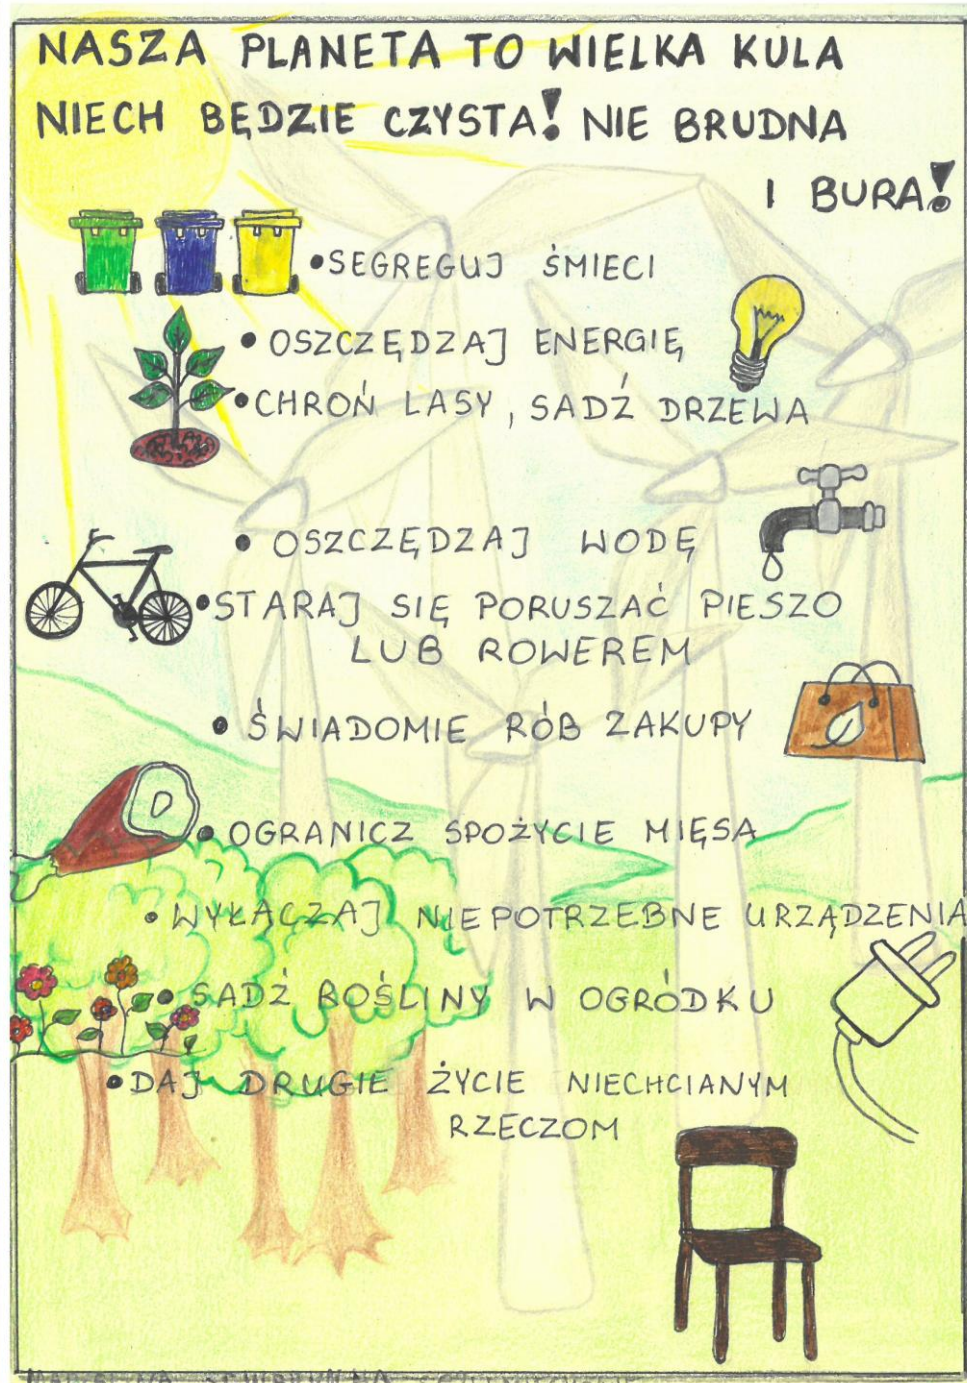 NASZA PLANETA TO WIELKA KULA
NIECH BĘDZIE CZYSTA! NIE BRUDNA
I BURA!
•SEGREGUJ ŚMIECI
•OSZCZĘDZAJ ENERGIĘ
•CHROŃ LASY, SADŹ DRZEWA
•OSZCZĘDZAJ WODĘ
•STARAJ SIĘ PORUSZAĆ PIESZO
LUB ROWEREM
•ŚWIADOMIE RÓB ZAKUPY
•OGRANICZ SPOŻYCIE MIĘSA
•WYŁĄCZAJ NIEPOTRZEBNE URZĄDZENIA
•SADŹ ROŚLINY W OGRÓDKU
•DAJ DRUGIE ŻYCIE NIECHCIANYM
RZECZOM